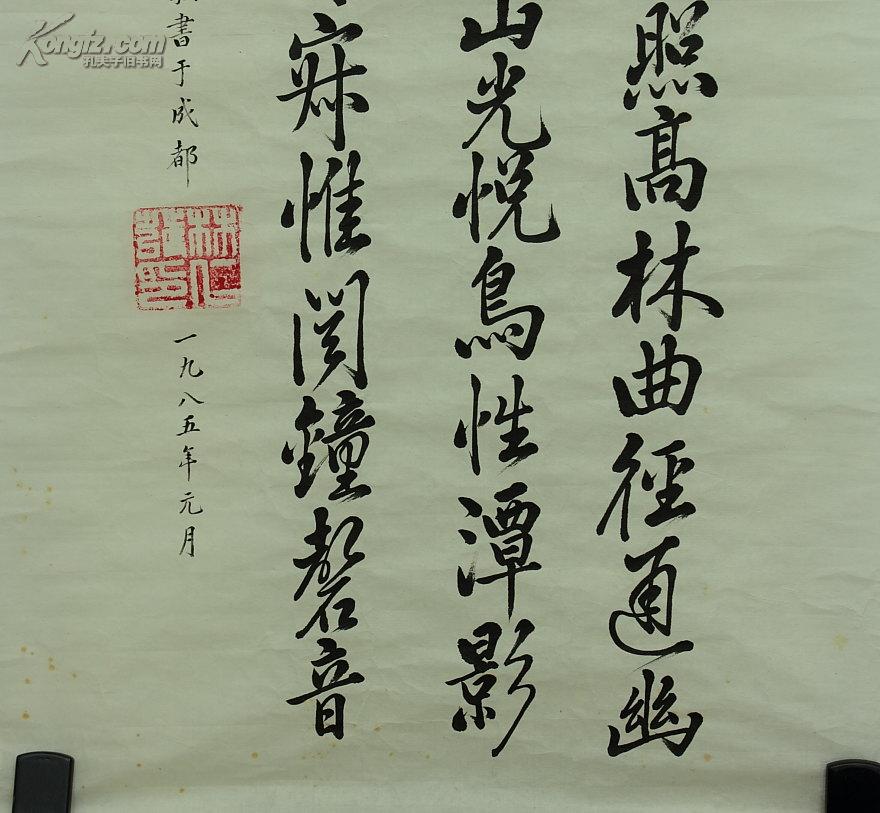 照高林曲徑通幽
山光悦鳥性潭影
寂惟聞鐘磬音
書于成都
一九八五年元月
林仁
Kongfz.com
孔夫子旧书网